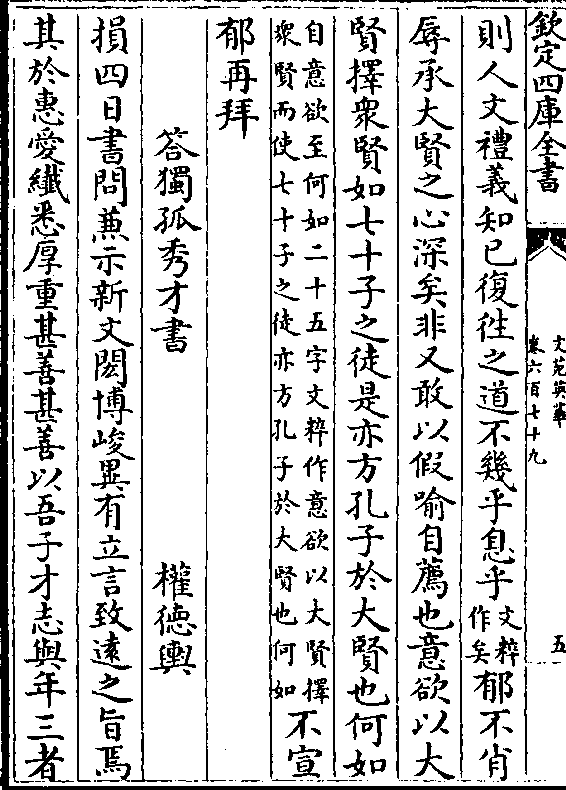 欽定四庫全書
文苑英華
卷六百七十九
五
則人文禮義知已復往之道不幾乎息乎文粹作矣郁不肖
辱承大賢之心深矣非又敢以假喻自薦也意欲以大
賢擇衆賢如七十子之徒是亦方孔子於大賢也何如
自意欲至何如二十五字文粹作意欲以大賢擇
衆賢而使七十子之徒亦方孔子於大賢也何如
不宣
郁再拜
答獨孤秀才書
權德輿
損四日書問兼示新文閎博峻異有立言致遠之旨焉
其於惠愛纎悉厚重甚善甚善以吾子才志與年三者